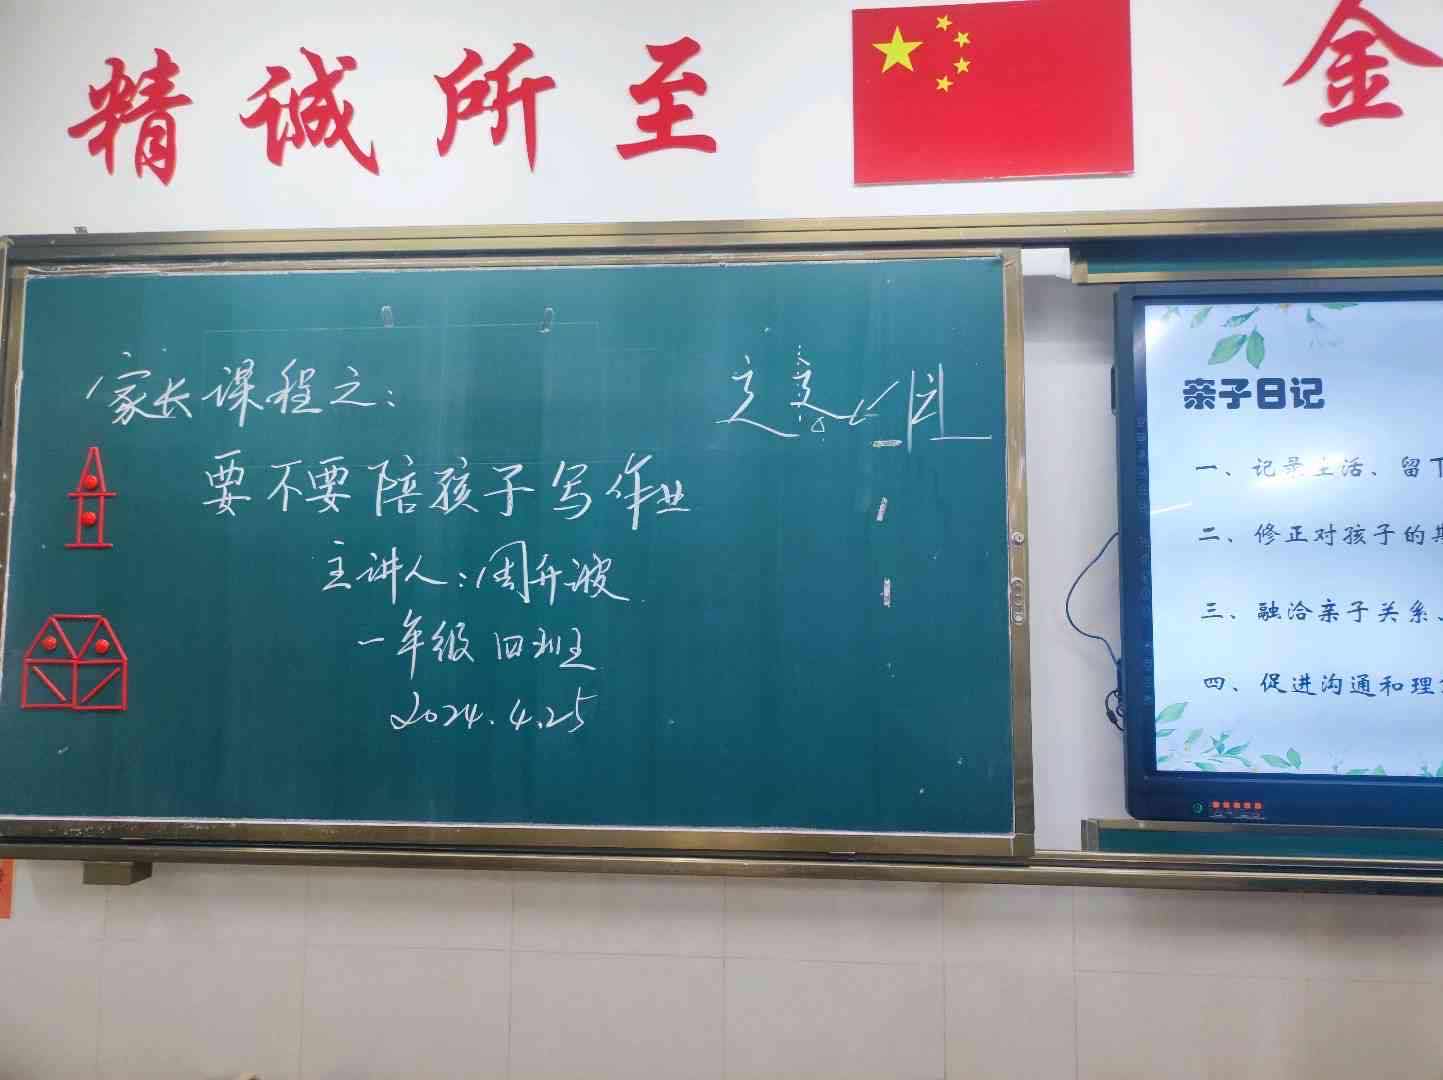 精诚所至
金
家长课程之:
要不要陪孩子写作业
主讲人:周升波
一年级四班
2024.4.25
亲子日记
一、记录生活、留下
二、修正对孩子的期
三、融洽亲子关系、
四、促进沟通和理